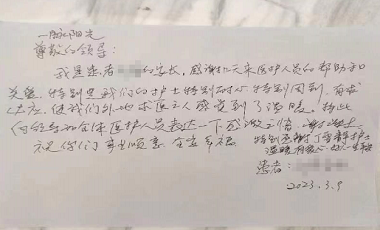 一脉阳光
尊敬的领导：
我是患者 的家长，感谢几天来医护人员的帮助和
关爱，特别是我们的护士特别耐心特别周到，有求
必应，使我们外地求医之人感受到了温暖。特此
向领导和全体医护人员表达一下感激之情，谢谢
祝你们事业顺意 全家幸福
特别感谢丁 护士
温暖有爱心
患者：
2023.3.9